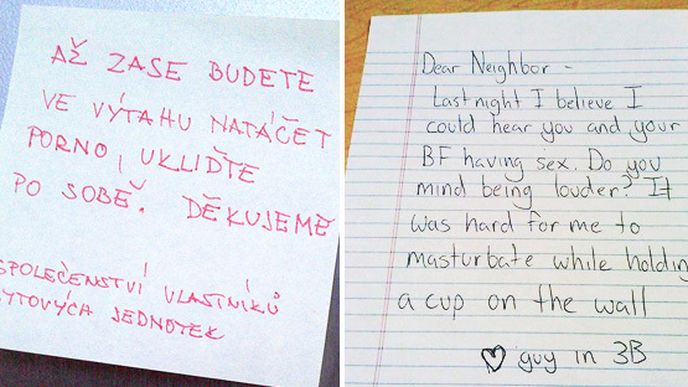 AŽ ZASE BUDETE
VE VÝTAHU NATÁČET
PORNO, UKLIĎTE
PO SOBĚ. DĚKUJEMĚ
SPOLEČENSTVÍ VLASTNÍKŮ
BYTOVÝCH JEDNOTEK
Dear Neighbor -
Last night I believe I
could hear you and your
BF having sex. Do you
mind being louder? It
was hard for me to
masturbate while holding
a cup on the wall
♡ guy in 3B